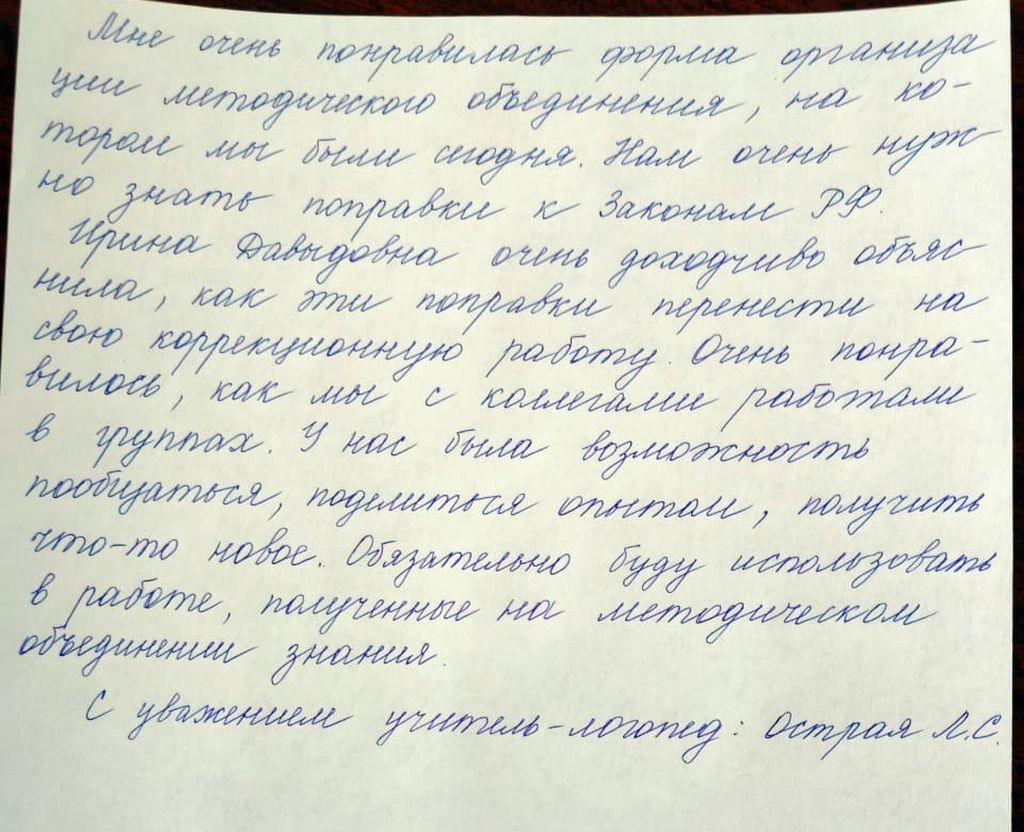 Мне очень понравилась форма организа
ции методического объединения, на ко-
тором мы были сегодня. Нам очень нуж
но знать поправки к Законам РФ.
Ирина Давыдовна очень доходчиво объяс
нила, как эти поправки перенести на
свою коррекционную работу. Очень понра-
вилось, как мы с коллегами работали
в группах. У нас была возможность
пообщаться, поделиться опытом, получить
что-то новое. Обязательно буду использовать
в работе, полученные на методическом
объединении знания.
С уважением учитель-логопед: Острая Л.С.